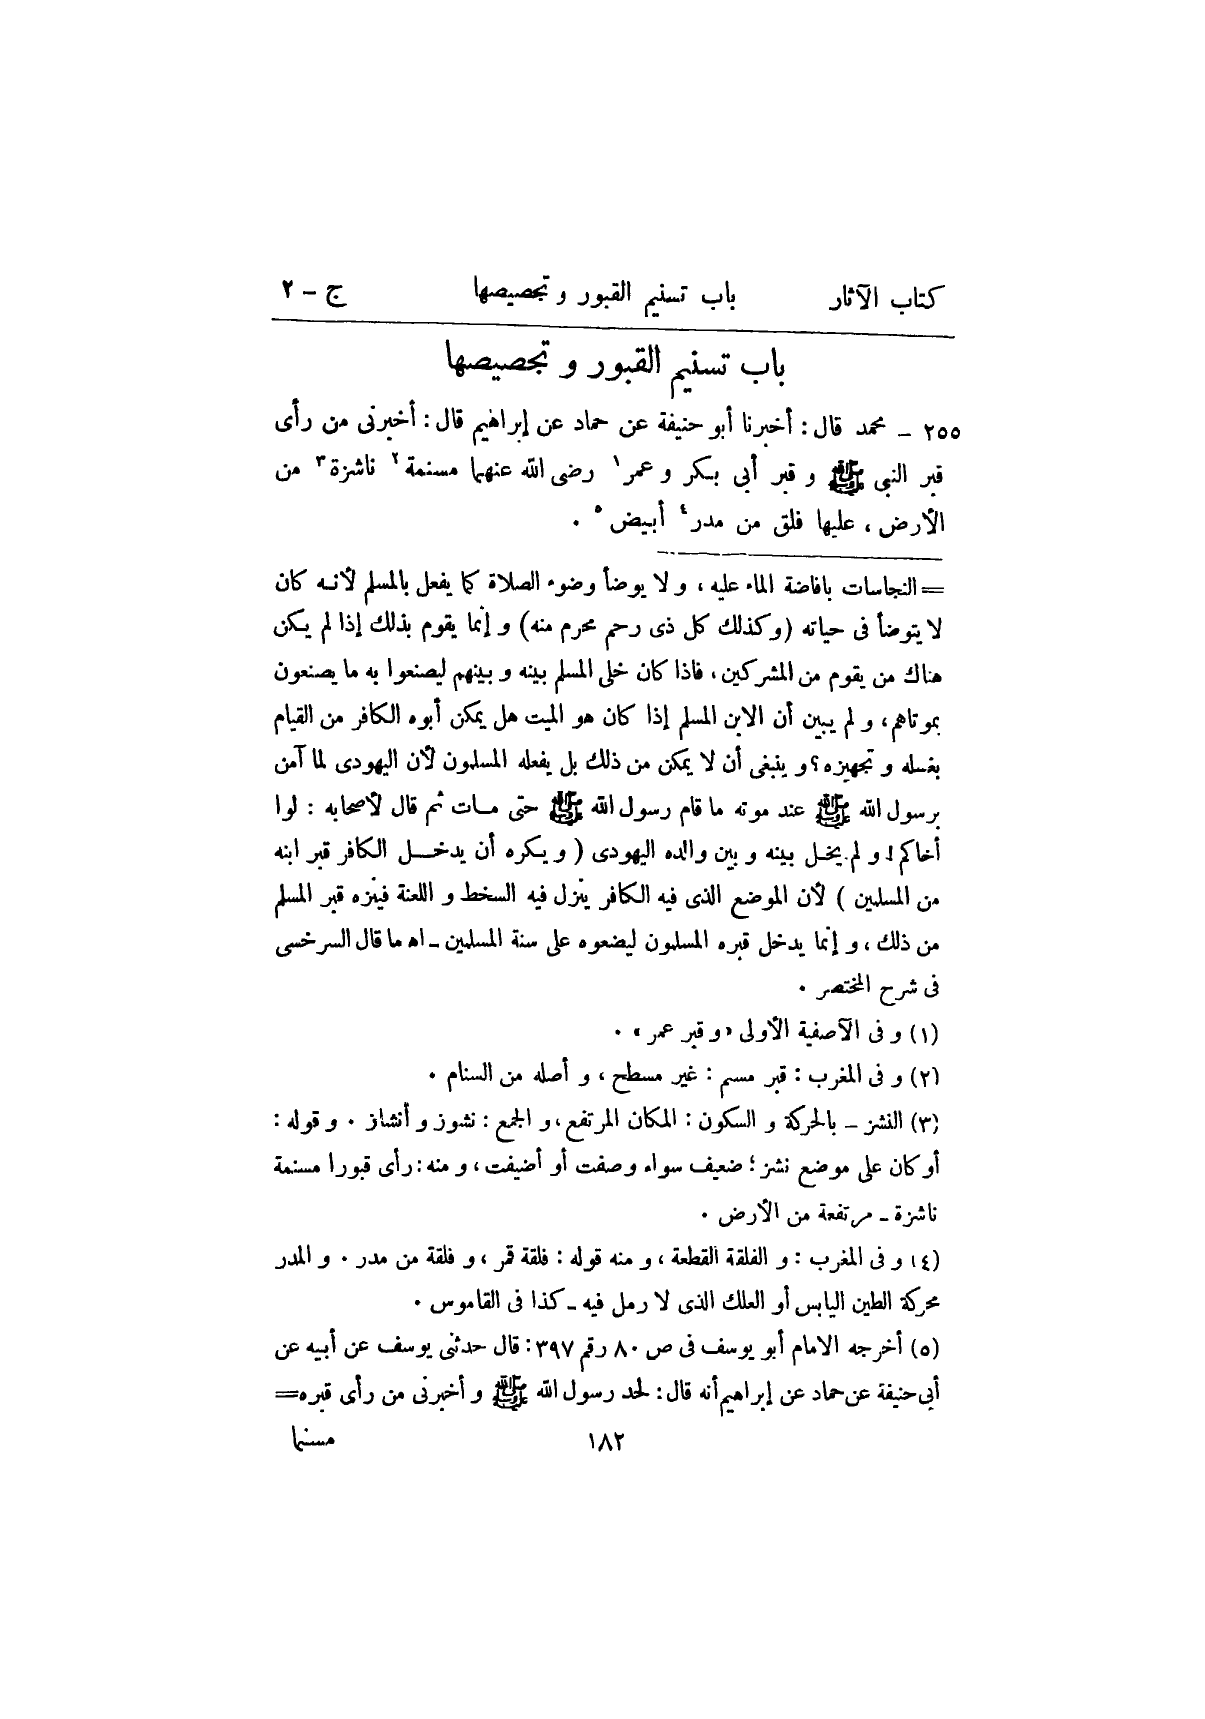 كتاب الآثار باب تسنيم القبور و تجصيصها ج – ٢
باب تسنيم القبور و تجصيصها
٢٥٥ – محمد قال : أخبرنا أبو حنيفة عن حماد عن إبراهيم قال : أخبرنى من رأى
قبر النبى ﷺ و قبر أبى بكر و عمر١ رضى الله عنهما مسنمة٢ ناشزة٣ من
الأرض ، عليها فلق من مدر٤ أبيض٥ .
= النجاسات بافاضة الماء عليه ، و لا يوضأ وضوء الصلاة كما يفعل بالمسلم لأنه كان
لا يتوضأ فى حياته (وكذلك كل ذى رحم محرم منه) و إنما يقوم بذلك إذا لم يكن
هناك من يقوم من المشركين ، فاذا كان خلى المسلم بينه و بينهم ليصنعوا به ما يصنعون
بموتاهم ، و لم يبين أن الابن المسلم إذا كان هو الميت هل يمكن أبوه الكافر من القيام
بغسله و تجهيزه ؟ و ينبغى أن لا يمكن من ذلك بل يفعله المسلمون لأن اليهودى لما آمن
برسول الله ﷺ عند موته ما قام رسول الله ﷺ حتى مات ثم قال لأصحابه : لوا
أخاكم ! و لم يخل بينه و بين والده اليهودى ( و يكره أن يدخل الكافر قبر ابنه
من المسلمين ) لأن الموضع الذى فيه الكافر ينزل فيه السخط و اللعنة فينزه قبر المسلم
من ذلك ، و إنما يدخل قبره المسلمون ليضعوه على سنة المسلمين – اه ما قال السرخسى
فى شرح المختصر .
(١) و فى الآصفية الأولى «و قبر عمر» .
(٢) و فى المغرب : قبر مسنم : غير مسطح ، و أصله من السنام .
(٣) النشز – بالحركة و السكون : المكان المرتفع ، و الجمع : نشوز و أنشاز . و قوله :
أو كان على موضع نشز ؛ ضعيف سواء وصفت أو أضيفت ، و منه : رأى قبورا مسنمة
ناشزة – مرتفعة من الأرض .
(٤) و فى المغرب : و الفلقة القطعة ، و منه قوله : فلقة قمر ، و فلقة من مدر . و المدر
محركة الطين اليابس أو العلك الذى لا رمل فيه – كذا فى القاموس .
(٥) أخرجه الامام أبو يوسف فى ص ٨٠ رقم ٣٩٧ : قال حدثنى يوسف عن أبيه عن
أبى حنيفة عن حماد عن إبراهيم أنه قال : لحد رسول الله ﷺ و أخبرنى من رأى قبره =
١٨٢ مسنما